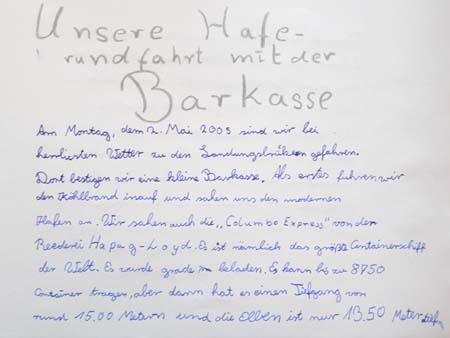 Unsere Hafe-
rundfahrt mit der
Barkasse
Am Montag, dem 2. Mai 2005 sind wir bei
herrlisten Wetter zu den Landungsbrüken gefahren.
Dort bestigen wir eine kleine Barkasse. Als erstes fuhren wir
den Köhlbrand inauf und sahen uns den modernen
Hafen an. Wir sahen auch die „Columbo Express" von der
Reederei Hapag-Loyd. Es ist nämlich das größte Containerschiff
der Welt. Es wurde grade beladen. Es kann bis zu 8750
Container tragen, aber dann hat es einen Tiefgang von
rund 15.00 Metern und die Elben ist nur 13.50 Meter tief.